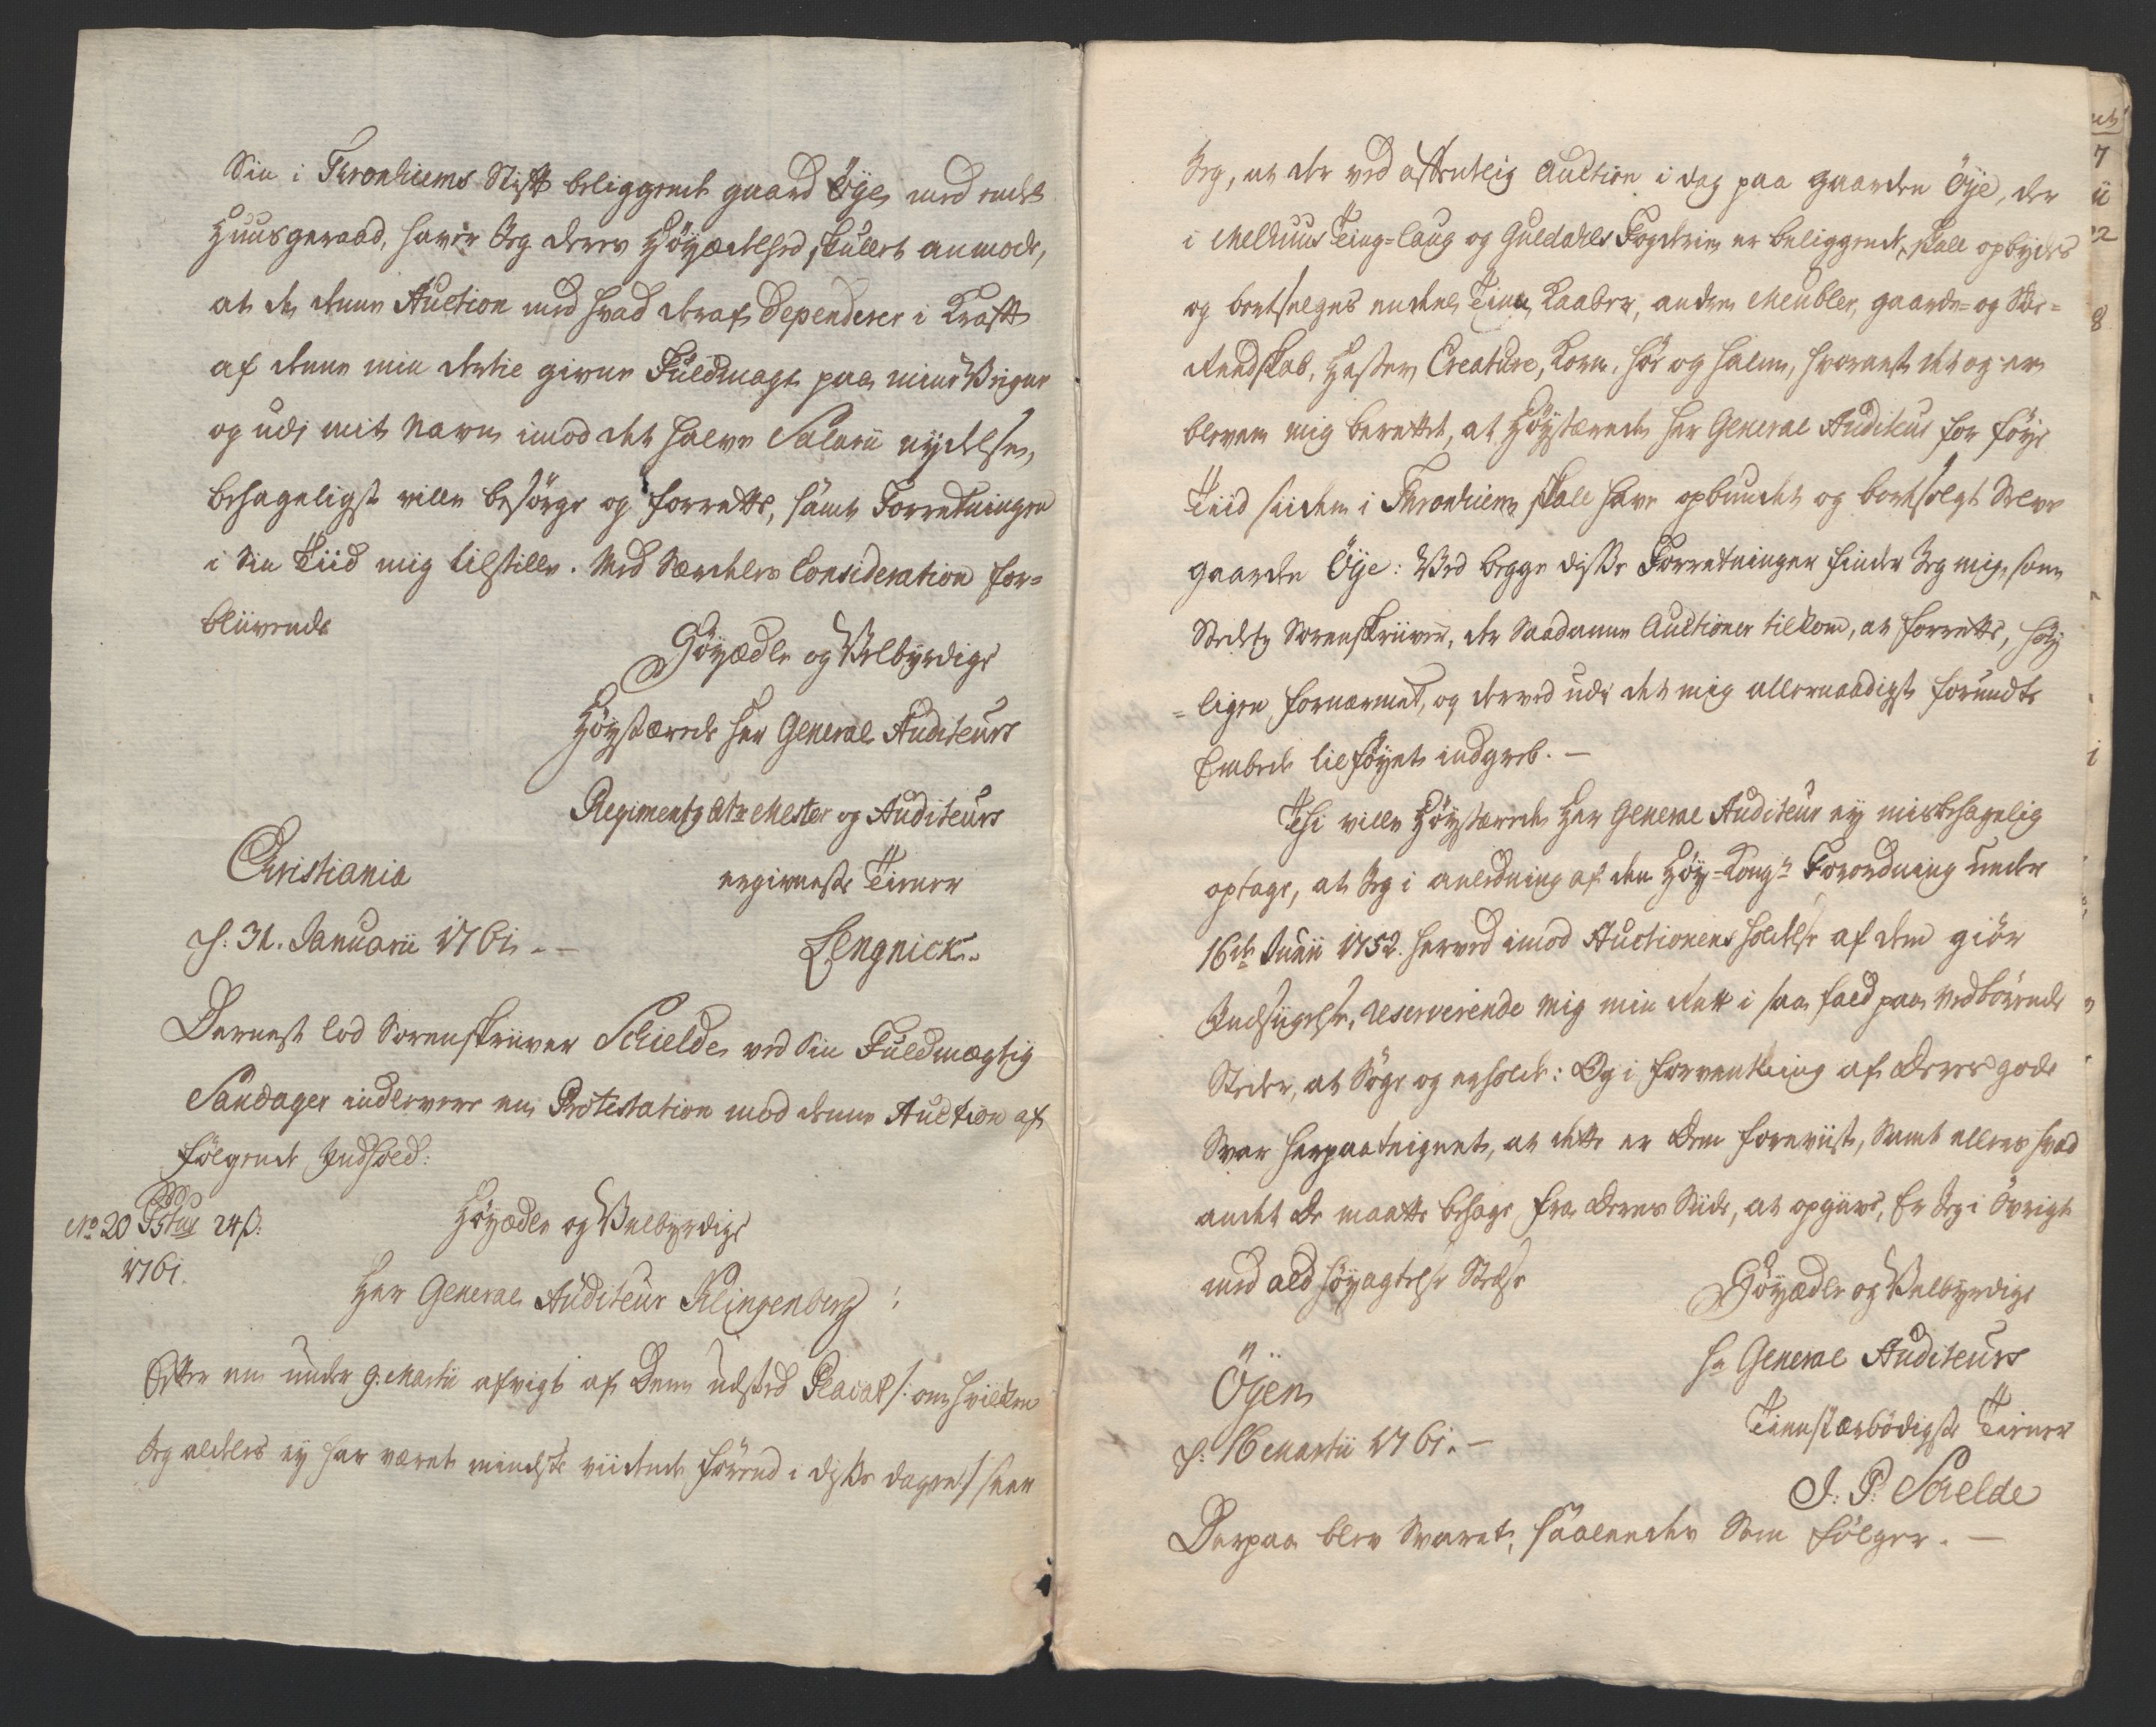 Sin i Thronhiems Stift beliggende gaard Öye, med endel
Huusgeraad, haver Jeg deres Höyædelhed skullet anmode,
at de denne Auction med hvad deraf dependerer i Kraft
af denne min dertil givne Fuldmagt paa mine Veigne
og udi mit Navn imod det halve Salarii nydelse,
behageligst ville besörge og forrette, samt Forretningen
i Sin Tiid mig tilstille. Med Særdeles Consideration for=
bliivende
Höyædle og Velbyrdige
Höystærede Her General Auditeurs
Regimentz qvr Mester og Auditeurs
Christiania
ergivneste Tiener
d: 31. Januarii 1761. -
Lengnick.
Dernest lod Sorenskriiver Schielde ved Sin Fuldmægtig
Sandager indlevere en Protestation mod denne Auction af
følgende Indhold:
No 20 24 s:
1761.
Höyædle og Velbyrdige
Her General Auditeur Klingenberg:
Efter en under 9. Martii afvigt af Dem udsted Placat /: om hvilken
Jeg aldeles ey har været mindste viidende förend i disse dage :/ seer
Jeg, at der ved offentlig Auction i dag paa gaarden Öye, der
i Melhuus Ting=laug og Guldahls Fogderie er beliggende, skall opbydes
og bortselges endeel Tin, Kaaber, anden Meubler, gaards= og Kiöre=
Reedskab, Hester, Creature, Korn, höe og halm, hvornest det og er
bleven mig berettet, at Höystærede Her General Auditeur for föye
Tiid siiden i Thronhiem skall have opbuudet og bortsolgt Selve
gaarden Öye: Ved begge disse Forretninger finder Jeg mig, som
Stedetz Sorenskriiver, der Saadanne Auctioner tilkom, at forrette, höy
=ligen fornærmet, og derved udi det mig allernaadigst forundte
Embede tilföyet indgreb. -
Thi ville Höystærede Her General Auditeur ey misbehagelig
optage, at Jeg i anledning af den Höy=Kongl: Forordning under
16de Junii 1752. herved imod Auctionens holdelse af dem giör
Indsiigelse, reserverende mig min Rett i saa fald paa vedbörende
Steder, at Söge og erholde: Og i forventning af Deres gode
Svar herpaateignet, at dette er Dem foreviist, Samt ellers hvad
andet De maatte behage fra Deres Siide, at opgiive, Er Jeg i Övrigt
med ald höyagtelse Stedse
Höyædle og Velbyrdige
Hr General Auditeurs
Öyen
Tienstærbödigste Tiener
d: 16 Martii 1761. -
J: P: Schelde
Derpaa blev Svaret, saaledes Som fölger. -